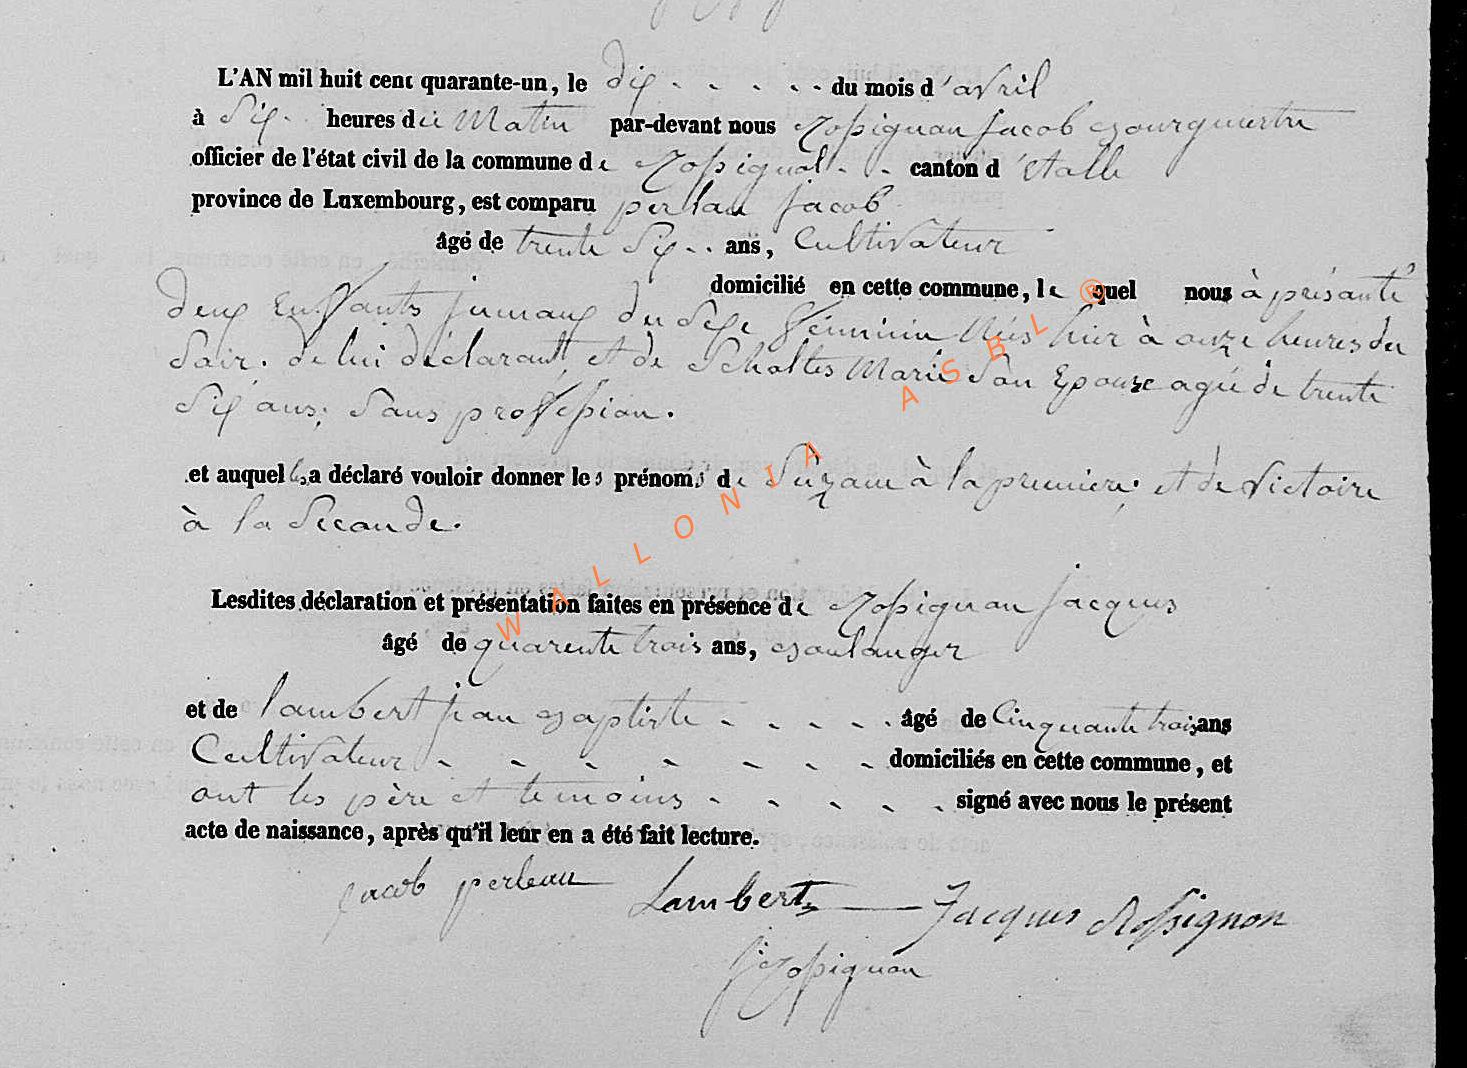 L'AN mil huit cent quarante-un, le dix - - - - - du mois d'avril
à Six - heures du Matin par-devant nous Rossignon Jacob Bourgmestre
officier de l'état civil de la commune de Rossignol - - canton d'Etalle
province de Luxembourg, est comparu perlau Jacob
âgé de trente Six - - ans, Cultivateur
domicilié en cette commune, lequel nous à présanté
deux Enffants jumaux du Sexe fféminin Nées hier à onze heures du
Soir. de lui déclarant, et de Scholtes Marie Son Epouze agée de trente
Six ans; Sans proffession.
et auquel les a déclaré vouloir donner les prénoms de Suzane à la premiere; et de Victoire
à la Seconde.
Lesdites déclaration et présentation faites en présence de Rossignon Jacques
âgé de quarente trois ans, Boulanger
et de lambert jean Baptiste - - - - - âgé de Cinquante trois ans
Cultivateur - - - - - - - domiciliés en cette commune, et
ont les père et temoins - - - - - signé avec nous le présent
acte de naissance, après qu'il leur en a été fait lecture.
jacob perleau Lambert Jacques Rossignon
J Rossignon
WALLONIA ASBL ®